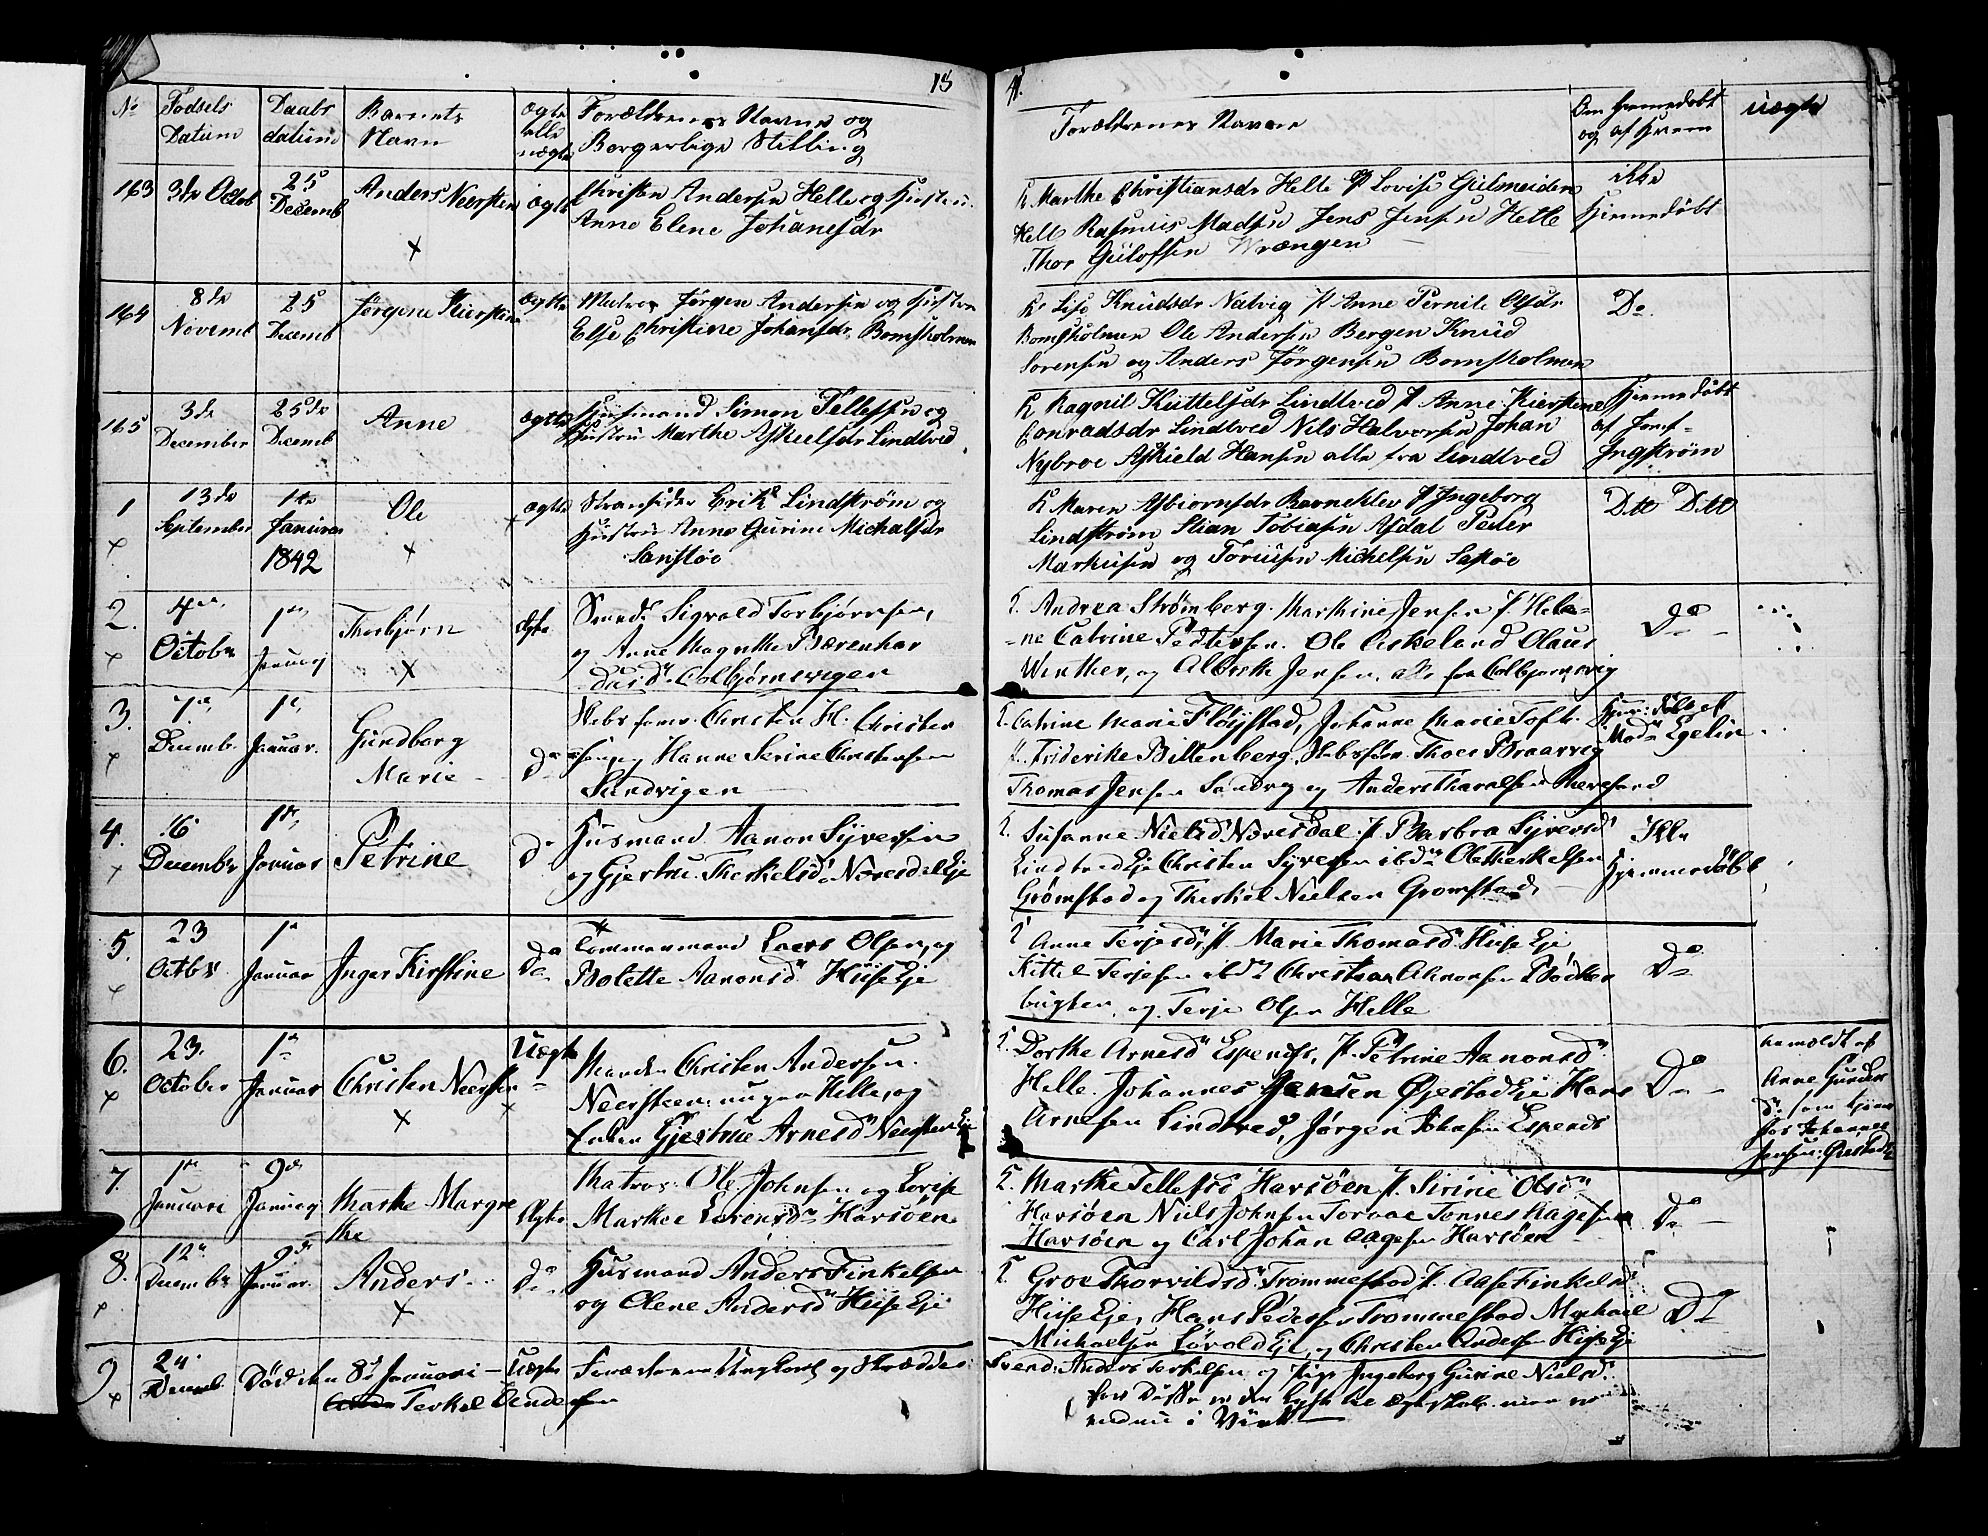 18 41.
No Fødsels Datum Daabs datum Barnets Navn Ægte elle uægte Forældrenes Navne og Borgerlige Stilling
Forældrenes Navne Om hjemmedøbt og af hvem uægte
163 3de Octob 25 Decemb Anders Neersten ægte Christen Andersen Helle og Hustru
Anne Elene Johanesdr
K. Marthe Christiansdr Helle P Lovise Gulmeiden
Helle Rasmus Madsen Jens Jensen Helle
Thor Gulofsen Wrængen
ikke Hjemmedøbt
164 8de Novemb 25 Decemb Jørgene Kierstine ægte Matros Jørgen Andersen og Hustru
Else Christine Johansdr Bomsholmen
K. Lise Knudsdr Natvig P Anne Pernile Olsdr
Bomsholmen Ole Andersen Bergen Knud
Sorensen og Anders Jørgensen Bomsholmen
Do
165 3de December 25de Decemb Anne ægte Huusmand Simon Tellefsen og
Hustru Marthe Askelsdr Lindtved
K Ragnil Kittelsdr Lindtved P Anne Kierstine
Conradsdr Lindtved Nils Halvorsen Johan
Nybroe Askield Hansen alle fra Lindtved
Hjemmedøbt af Jomf Ingstrøm
1 13de September 1te Januar 1842 Ole ægte Strandsider Erik Lindstrøm og
Hustru Anne Gurine Michalsdr
Sanstøe
K Maren Asbiornsdr Barneklev P Ingeborg
Lindstrøm Stian Tobiasen Asdal Peder
Markusen og Toruisen Michelsen Sastøe
Dtto Dtto
2. 4de Octobr 1te Januar Thorbjørn Ægte Smeds Sigvald Torbjørnsen,
og Anne Magrethe Bærenhar
dusdr Colbjørnsvigen
K. Andrea Strømberg. Marthine Jensen P Hele-
ne Catrine Pedtersen. Ole Askeland Olaus
Winther, og Albrekt Jensen. alle fra Colbjørnsvig
Do
3. 7de Decemb. 1te Januar. Gundborg Marie do Skibsføres. Christen H. Christen
sen og Hanne Serine Christensen
Sandvigen
K. Catrine Marie Fløystad, Johanne Marie Toft.
P. Friderike Biltenberg, Skibsføm. Thoes Braarvig
Thomas Jensen Sandvg og Anders Tharalsen Therefsund
Hjem: døbt af Mad Egelin
4. 16 Decembr 1te Januar Petrine do Husmand Aanon Syversen
og Gjertru. Therkelsdr Næresdal Eje
K. Susanne Nielsdr Næresdal. P. Barbro Syversdr
Lindtved Eje Christen Syversen ibdm Ole Therkelsen
Grømstad og Therkel Nielsen Gromstad
Ikke Hjemmedøbt
5. 23 Octbr 1te Januar Inger Kirstine do Tømmermand Laers Olsen, og
Bolette Aanonsdr Hiise Eje
K Anne Terjesdr P. Marie Thomasdr Hiise Eje,
Kittel Terjesen ibdm Christian Aanonsen Bødker
bugten, og Terje Olsen Helle
Do
6. 23. October 1te Januar Christen Neersten Uægte Manden Christen Andersen.
Neersteen: ungar Helle, og
Enken Gjertrue Arnesdr Neersten Eje
K. Dorthe Arnesdr Espenes. P. Petrine Aanonsd
Helle. Johannes Jensen Øjestad Eje Hans
Arnesen Lindtved, Jørgen Johnsen Espends
Do
anmeldt af Anne Gunders dr som tjener hos Johannes Jensen Øiestad
7. 1te Januari 9de Januar Marthe Margre the Ægte Matros. Ole Johnsen og Lovise
Markoe Lorensdr Havsøen
K. Marthe Tellefsd Havsøen P. Sirine Olsd
Havsøen Niels Johnsen Torvae Tønnes Aagesen
Havsøen og Carl Johan Aagesen Havsøen
Do
8. 12de Decembr 9de Januar. Anders do Husmand Anders Finkelsen
og Olene Andersd Hiise Eje
K. Groe Thorvildsd Trommestad P. Aase Finkelsd
Hiise Eje, Hans Peders Trommestad Michael
Michaelsen Løvold Eje, og Christen Andersen Hiise Eje
Do
9 24 Decemb. Død den 8de Januari Terkel Andersen Uægte Forældrene Ungkarl og Skrædder
Svend: Anders Terkelsen og Pige Ingeborg Gurine Nielsd.